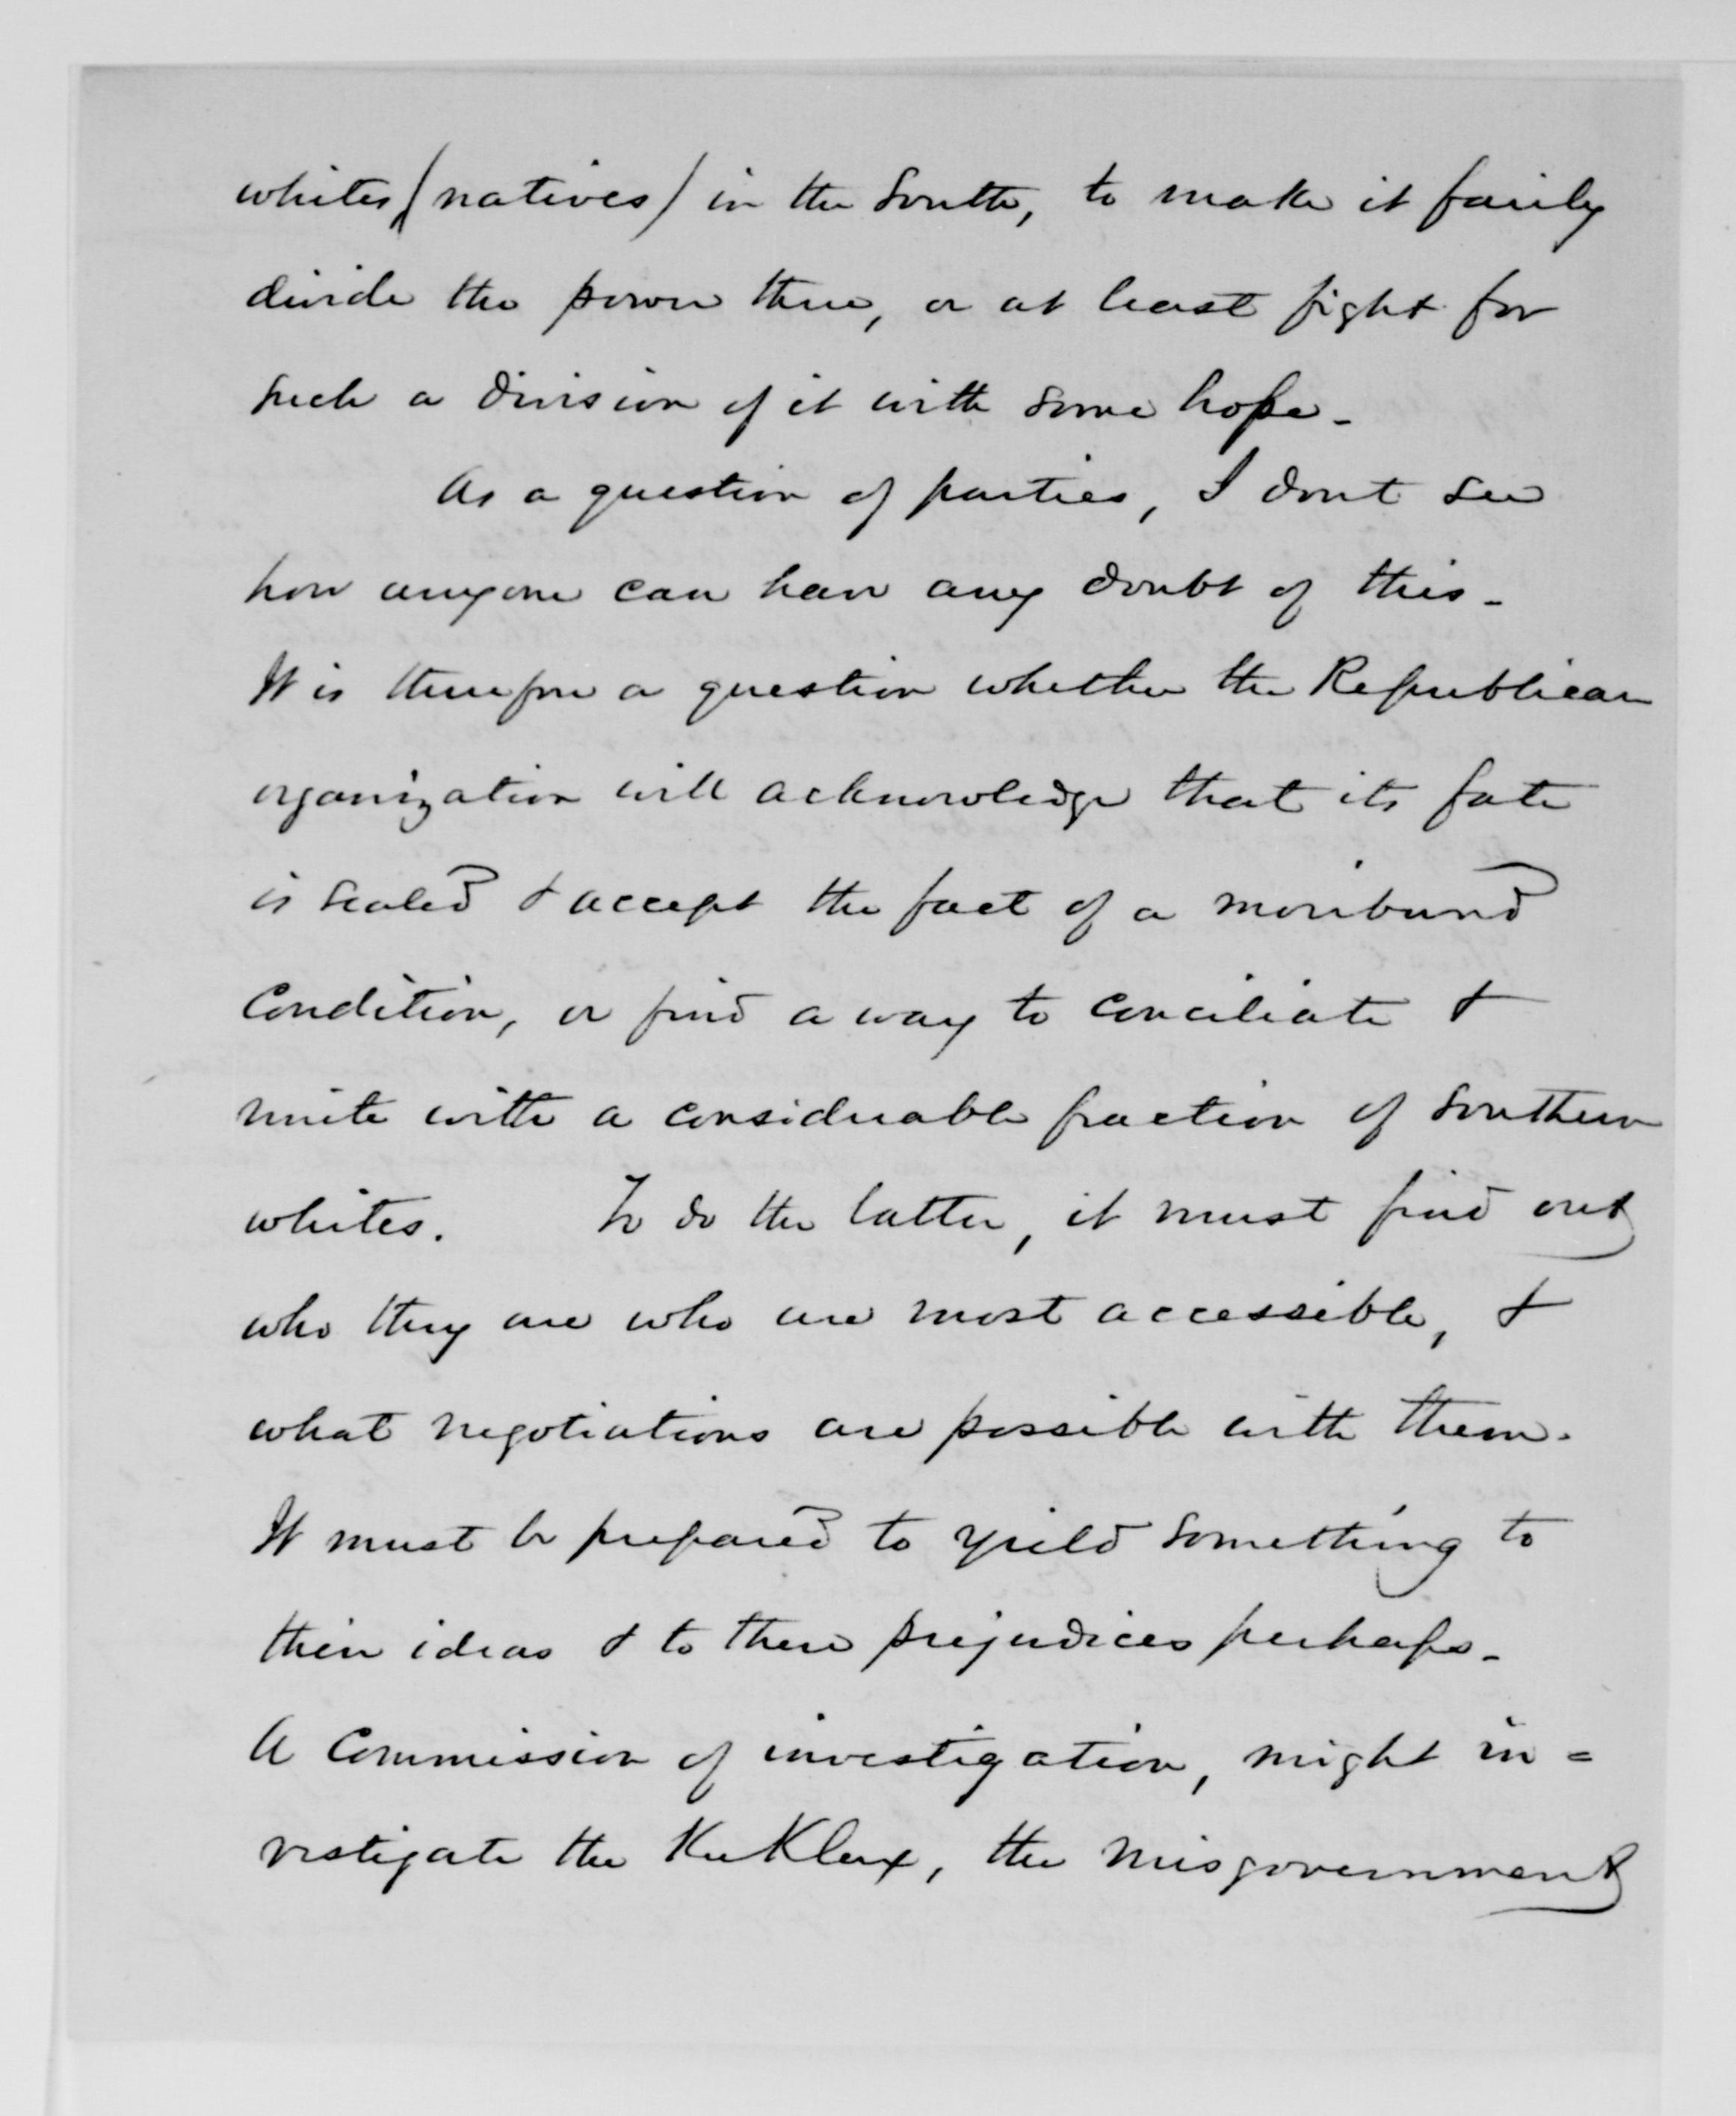 whites (natives) in the South, to make it fairly
divide the power there, or at least fight for
such a division of it with some hope -
As a question of parties, I dont see
how anyone can have any doubt of this -
It is therefore a question whether the Republican
organization will acknowledge that its fate
is sealed & accept the fact of a moribund
condition, or find a way to conciliate &
unite with a considerable fraction of Southern
whites. To do the latter, it must find out
who they are who are most accessible, &
what negotiations are possible with them.
It must be prepared to yield something to
their ideas & to their prejudices perhaps -
A Commission of investigation, might in=
vestigate the KuKlux, the misgovernment